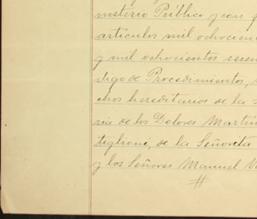 nisterio Público y con
artículos mil ochocien
y mil ochocientos
digo de Procedimientos,
chos hereditarios de la
ría de los Dolores Martín
tiglione, de la Señorita
y los Señores Manuel
#